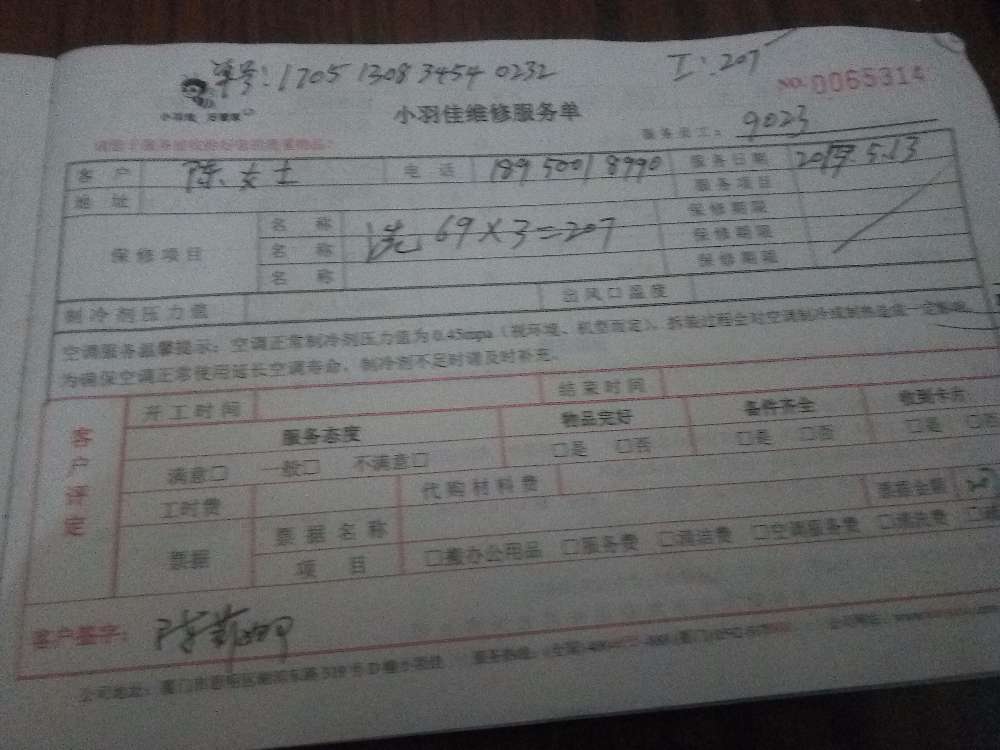 单号:170513083454 0232 I:207
NO.0065314
小羽佳 万事家
小羽佳维修服务单
服务员工: 9023
客户 陈女士 电话 18950018990 服务日期 2017.5.13
地址 服务项目
保修项目 名称 洗 69×3=207 保修期限
名称 保修期限
名称 保修期限
制冷剂压力值 出风口温度
空调服务温馨提示:空调正常制冷剂压力值为0.45mpa(视环境、机型而定)、拆装过程会对空调制冷或制热造成一定影响,
为确保空调正常使用延长空调寿命,制冷剂不足时请及时补充。
客户评定
开工时间 结束时间
服务态度 物品完好 备件齐全 收到卡片
满意□ 一般□ 不满意□ □是 □否 □是 □否 □是
工时费 代购材料费
票据 票据名称 票据金额
项目 □搬办公用品 □服务费 □清洁费 □空调服务费 □清洗费
客户签字:
公司地址:厦门市思明区 服务热线: